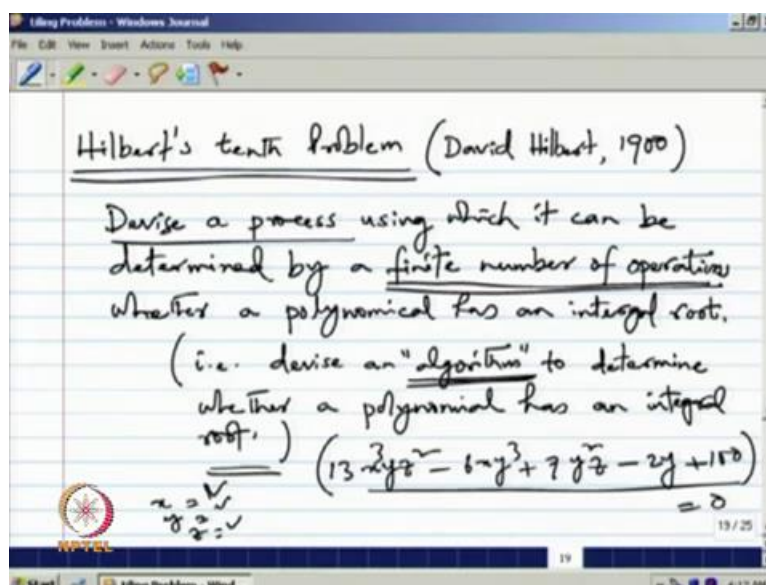 tiling Problem - Windows Journal
File Edit View Insert Actions Tools Help
Hilbert's tenth Problem (David Hilbert, 1900)
Devise a process using which it can be
determined by a finite number of operations
whether a polynomical has an integral root.
(i.e. devise an "algorithm" to determine
whether a polynomial has an integral
root.) (13 x³yz² - 6xy³ + 7 y²z - 2y + 100)
= 0
x = ✓
y = ✓
z = ✓
NPTEL
19 / 25
19
Start